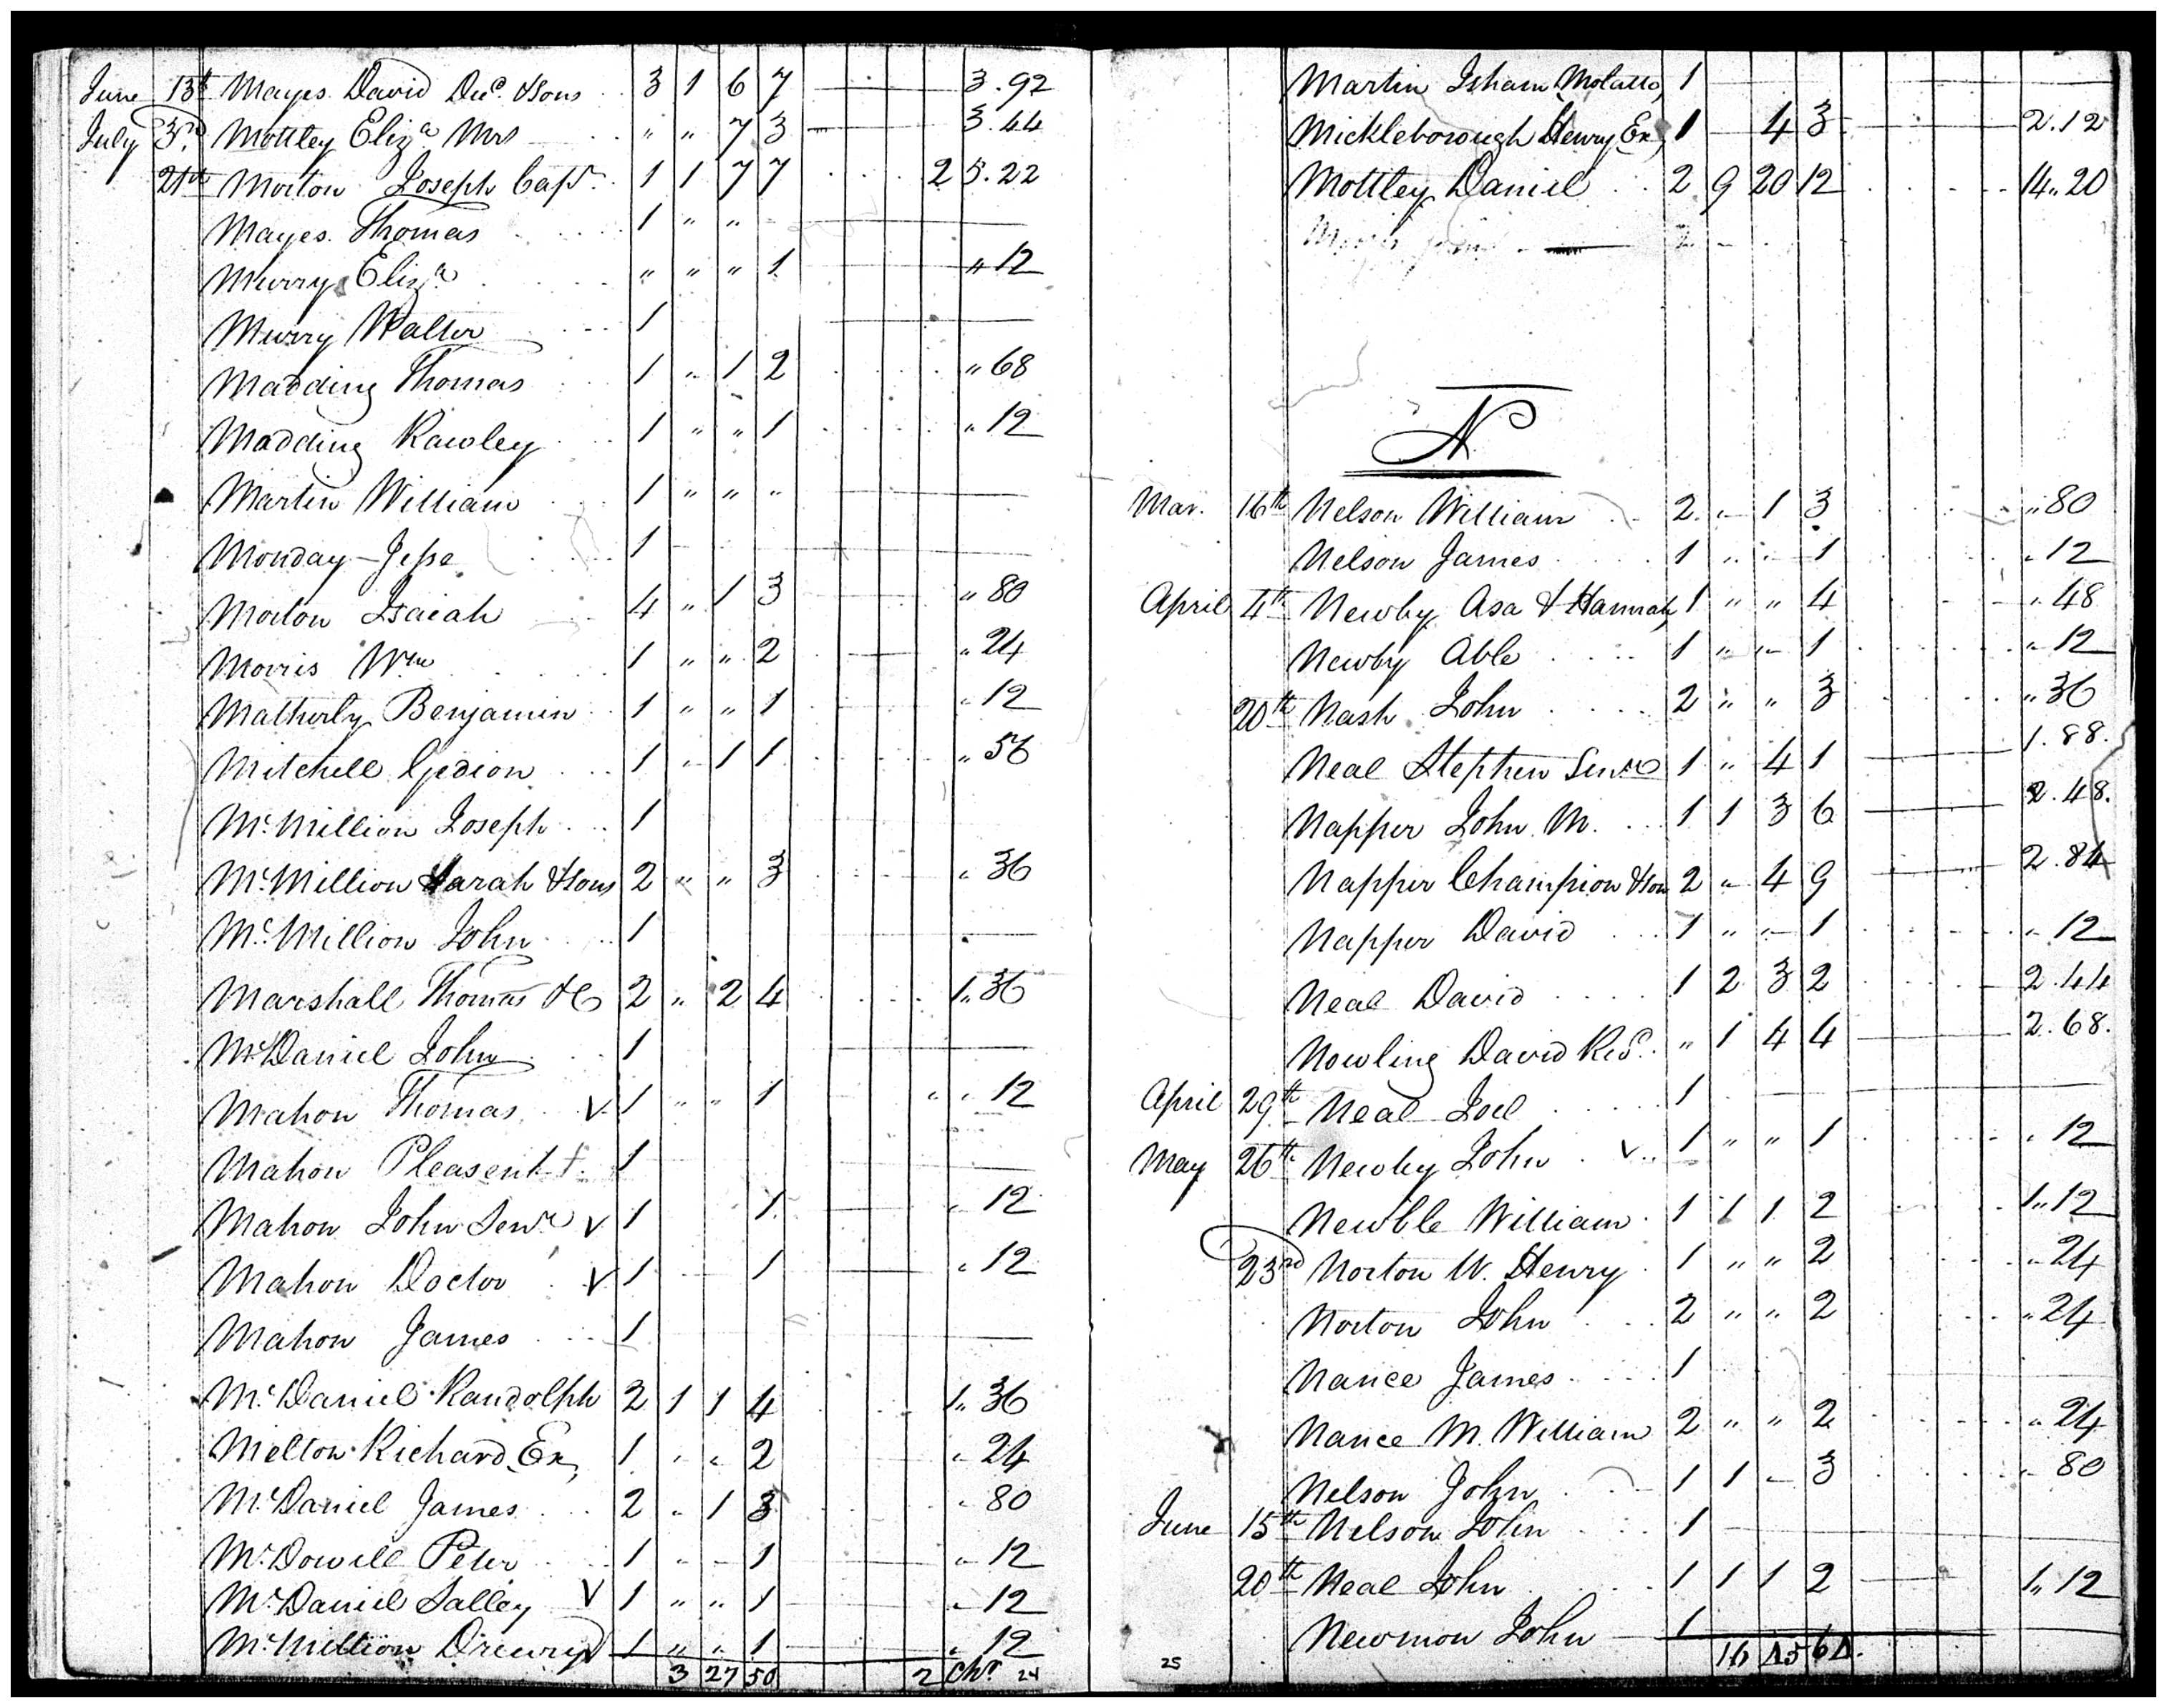 June 13th Mayes David Decd. & Sons 3 1 6 7 3.92
July 3rd Mottley Eliza Mrs " " 7 3 3.44
21st Morton Joseph Capt. 1 1 7 7 2 5.22
Mayes Thomas 1 " "
Murry Eliza " " " 1 " 12
Murry Walter 1
Madding Thomas 1 " 1 2 " 68
Madding Rawley 1 " " 1 " 12
Martin William 1 " " "
Monday Jesse 1
Morton Isaiah 4 " 1 3 " 80
Morris Wm 1 " " 2 " 24
Matherly Benjamin 1 " " 1 " 12
Mitchell Gedion 1 " 1 1 " 56
McMillion Joseph 1
McMillion Sarah & Sons 2 " " 3 " 36
McMillion John 1
Marshall Thomas & Co 2 " 2 4 1 " 36
McDaniel John 1
Mahon Thomas V 1 " " 1 " " 12
Mahon Pleasent 1
Mahon John Senr V 1 1 " 12
Mahon Doctor V 1 1 " 12
Mahon James 1
McDaniel Randolph 2 1 1 4 1 " 36
Melton Richard Ex 1 " " 2 " 24
McDaniel James 2 " 1 3 " 80
McDowell Peter 1 " - 1 " 12
McDaniel Salley V 1 " " 1 " 12
McMillion Drewry 1 " " 1 " 12
3 27 50 2 24
Martin Isham Molatto 1
Mickleborough Henry Ex 1 4 3 2.12
Mottley Daniel 2 9 20 12 14 " 20
N
Mar. 16th Nelson William 2 " 1 3 " 80
Nelson James 1 " " 1 " 12
April 4th Newby Asa & Hannah 1 " " 4 " 48
Newby Able 1 " " 1 " 12
20th Nash John 2 " " 3 " 36
Neal Stephen Senr 1 " 4 1 1.88.
Napper John M. 1 1 3 6 2.48.
Napper Champion & Son 2 " 4 9 2.84
Napper David 1 " " 1 " 12
Neal David 1 2 3 2 2.44
Nowling David Red. " 1 4 4 2.68.
April 29th Neal Joel 1
May 26th Newby John V 1 " " 1 " 12
Newble William 1 1 1 2 1 " 12
23rd Norton W. Henry 1 " " 2 " 24
Norton John 2 " " 2 " 24
Nance James 1
Nance M. William 2 " " 2 " 24
Nelson John 1 1 - 3 " 80
June 15th Nelson John 1
20th Neal John 1 1 1 2 1 " 12
Newmon John 1
25 16 45 64.